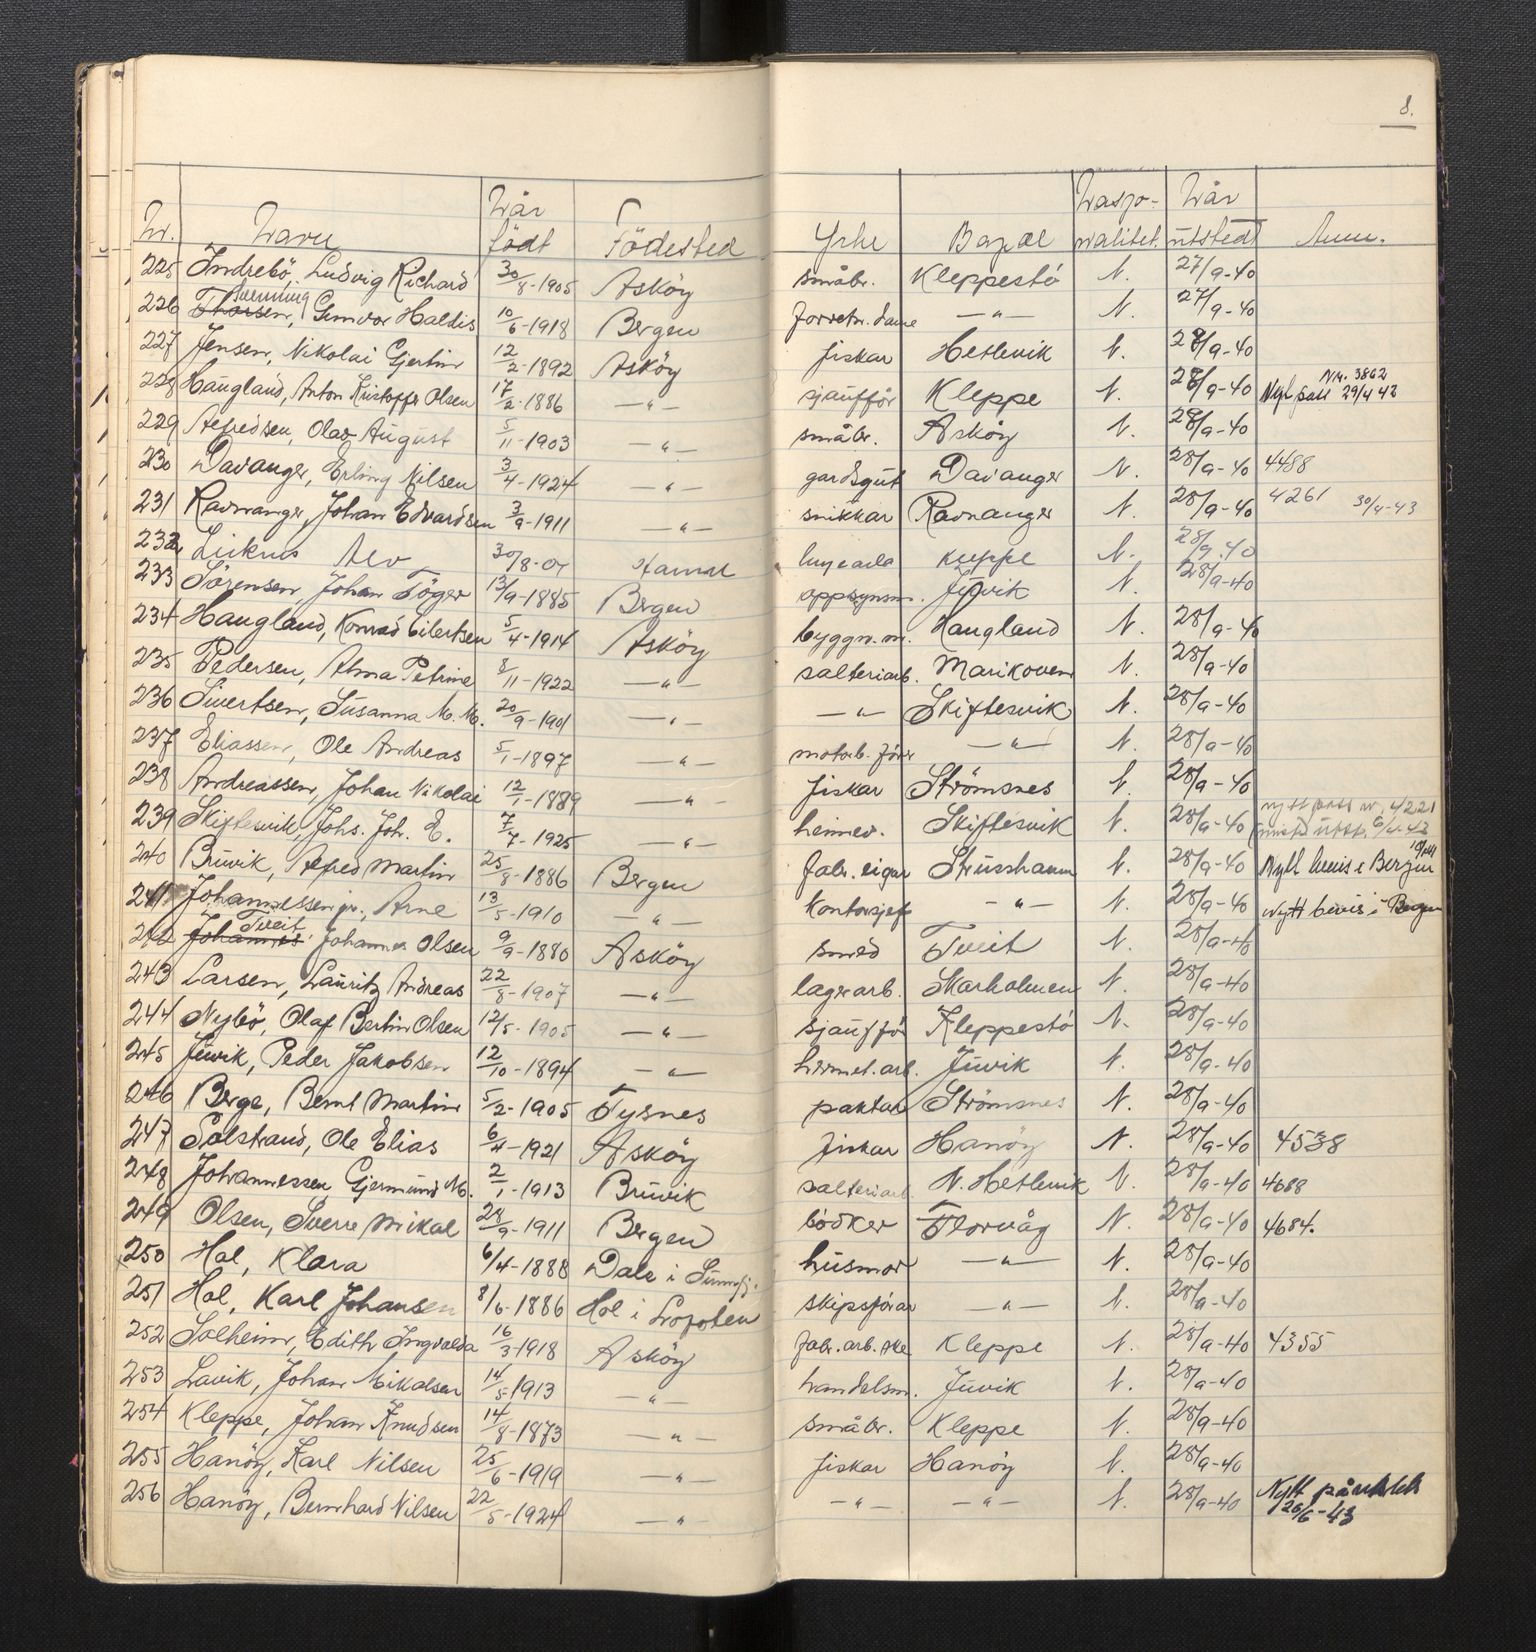 8.
Nr. Navn Når födt Födested Yrke Bopæl Nasjonalitet. Når utstedt Anm.
225 Indrebö, Ludvig Richard 30/8-1905 Asköy småbr. Kleppestö N. 27/9-40
226 Thorsen, Gunvor Haldis 10/6-1918 Bergen forretn. dame —"— N. 27/9-40
227 Jensen, Nikolai Gjertin 12/2-1892 Asköy fiskar Hetlevik N. 28/9-40
228 Haugland, Anton Kristoffer Olsen 17/2-1886 —"— sjaufför Kleppe N. 28/9-40 Nytt pass Nr. 3862 29/4 42
229 Alfredsen, Olav August 5/11-1903 —"— småbr. Asköy N. 28/9-40
230 Davanger, Erling Nilsen 3/4-1924 —"— gardsgut Davanger N. 28/9-40 4488
231 Ravnanger, Johan Edvardsen 3/9-1911 —"— snikkar Ravnanger N. 28/9-40 4261 30/4-43
232 Alv 30/8-07 Hamar Kleppe N. 28/9.40
233 Sörensen, Johan Töger 13/9-1885 Bergen oppsynsm. Juvik N. 28/9-40
234 Haugland, Konrad Eilertsen 5/4-1914 Asköy byggn.m. Haugland N. 28/9-40
235 Pedersen, Alma Petrine 8/11-1922 —"— salteriarb. Marikoven N. 28/9-40
236 Sivertsen, Susanna M. M. 20/9-1901 —"— —"— Skiftesvik N. 28/9-40
237 Eliassen, Ole Andreas 5/1-1897 —"— motorb. förer —"— N. 28/9-40
238 Andreassen, Johan Nikolai 12/1-1889 —"— fiskar Strömsnes N. 28/9-40
239 Skiftesvik, Johs. Joh. E. 7/7-1925 —"— heimev. Skiftesvik N. 28/9-40 nytt pass nr. 4221 utst. 6/4-43
240 Bruvik, Alfred Martin 25/8-1886 Bergen fabr. eigar Strusshamn N. 28/9-40 Nytt bevis i Bergen
241 Johannessen jr., Arne 13/5-1910 —"— Kontorsjef —"— N. 28/9-40 Nytt bevis i Bergen
242 Johannes Tveit Johannes Olsen 9/9-1880 Asköy smed Tveit N. 28/9-40
243 Larsen, Lauritz Andreas 22/8-1907 —"— lagerarb. Skarholmen N. 28/9-40
244 Nybö, Olaf Bertin Olsen 12/5-1905 —"— sjaufför Kleppestö N. 28/9-40
245 Juvik, Peder Jakobsen 12/10-1894 —"— hermet.arb. Juvik N. 28/9-40
246 Berge, Bernt Martin 5/2-1905 Tysnes paktar Strömsnes N. 28/9-40
247 Solstrand, Ole Elias 6/4-1921 Asköy fiskar Hanöy N. 28/9-40 4538
248 Johannessen Gjermund M. 2/1-1913 Bruvik salteriarb. N. Hetlevik N. 28/9-40 4688
249 Olsen, Sverre Mikal 28/9-1911 Bergen bödker Florvåg N. 28/9-40 4684.
250 Hol, Klara 6/4-1888 Dale i Sunnfj. husmor —"— N. 28/9-40
251 Hol, Karl Johansen 8/6-1886 Hol i Lofoten skipsförar —"— N. 28/9-40
252 Solheim, Edith Ingvalda 16/3-1918 Asköy fabr.arb.ske Kleppe N. 28/9-40 4355
253 Lavik, Johan Mikalsen 14/5-1913 —"— handelsm. Juvik N. 28/9-40
254 Kleppe, Johan Knudsen 14/8-1873 —"— småbr. Kleppe N. 28/9-40
255 Hanöy, Karl Nilsen 25/6-1919 —"— fiskar Hanöy N. 28/9-40
256 Hanöy, Bernhard Nilsen 22/5-1924 —"— —"— —"— N. 28/9-40 Nytt 26/6-43